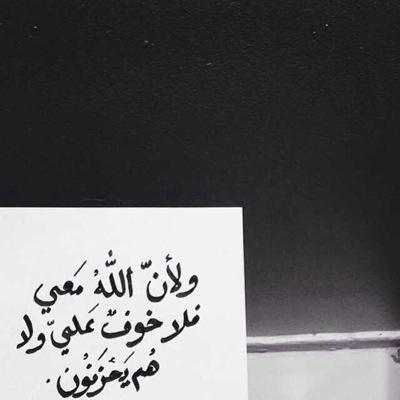 ولأنّ اللهُ مَعي
فلا خوفٌ عَليّ ولا
هُم يَحْزَنُون .